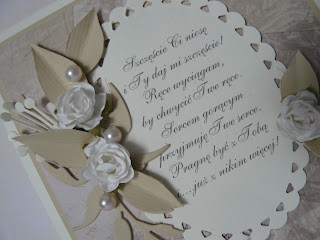 Szczęście Ci niosę
i Ty daj mi szczęście!
Ręce wyciągam,
by chwycić Twe ręce.
Sercem gorącym
przyjmuję Twe serce.
Pragnę być z Tobą
i...już z nikim więcej!